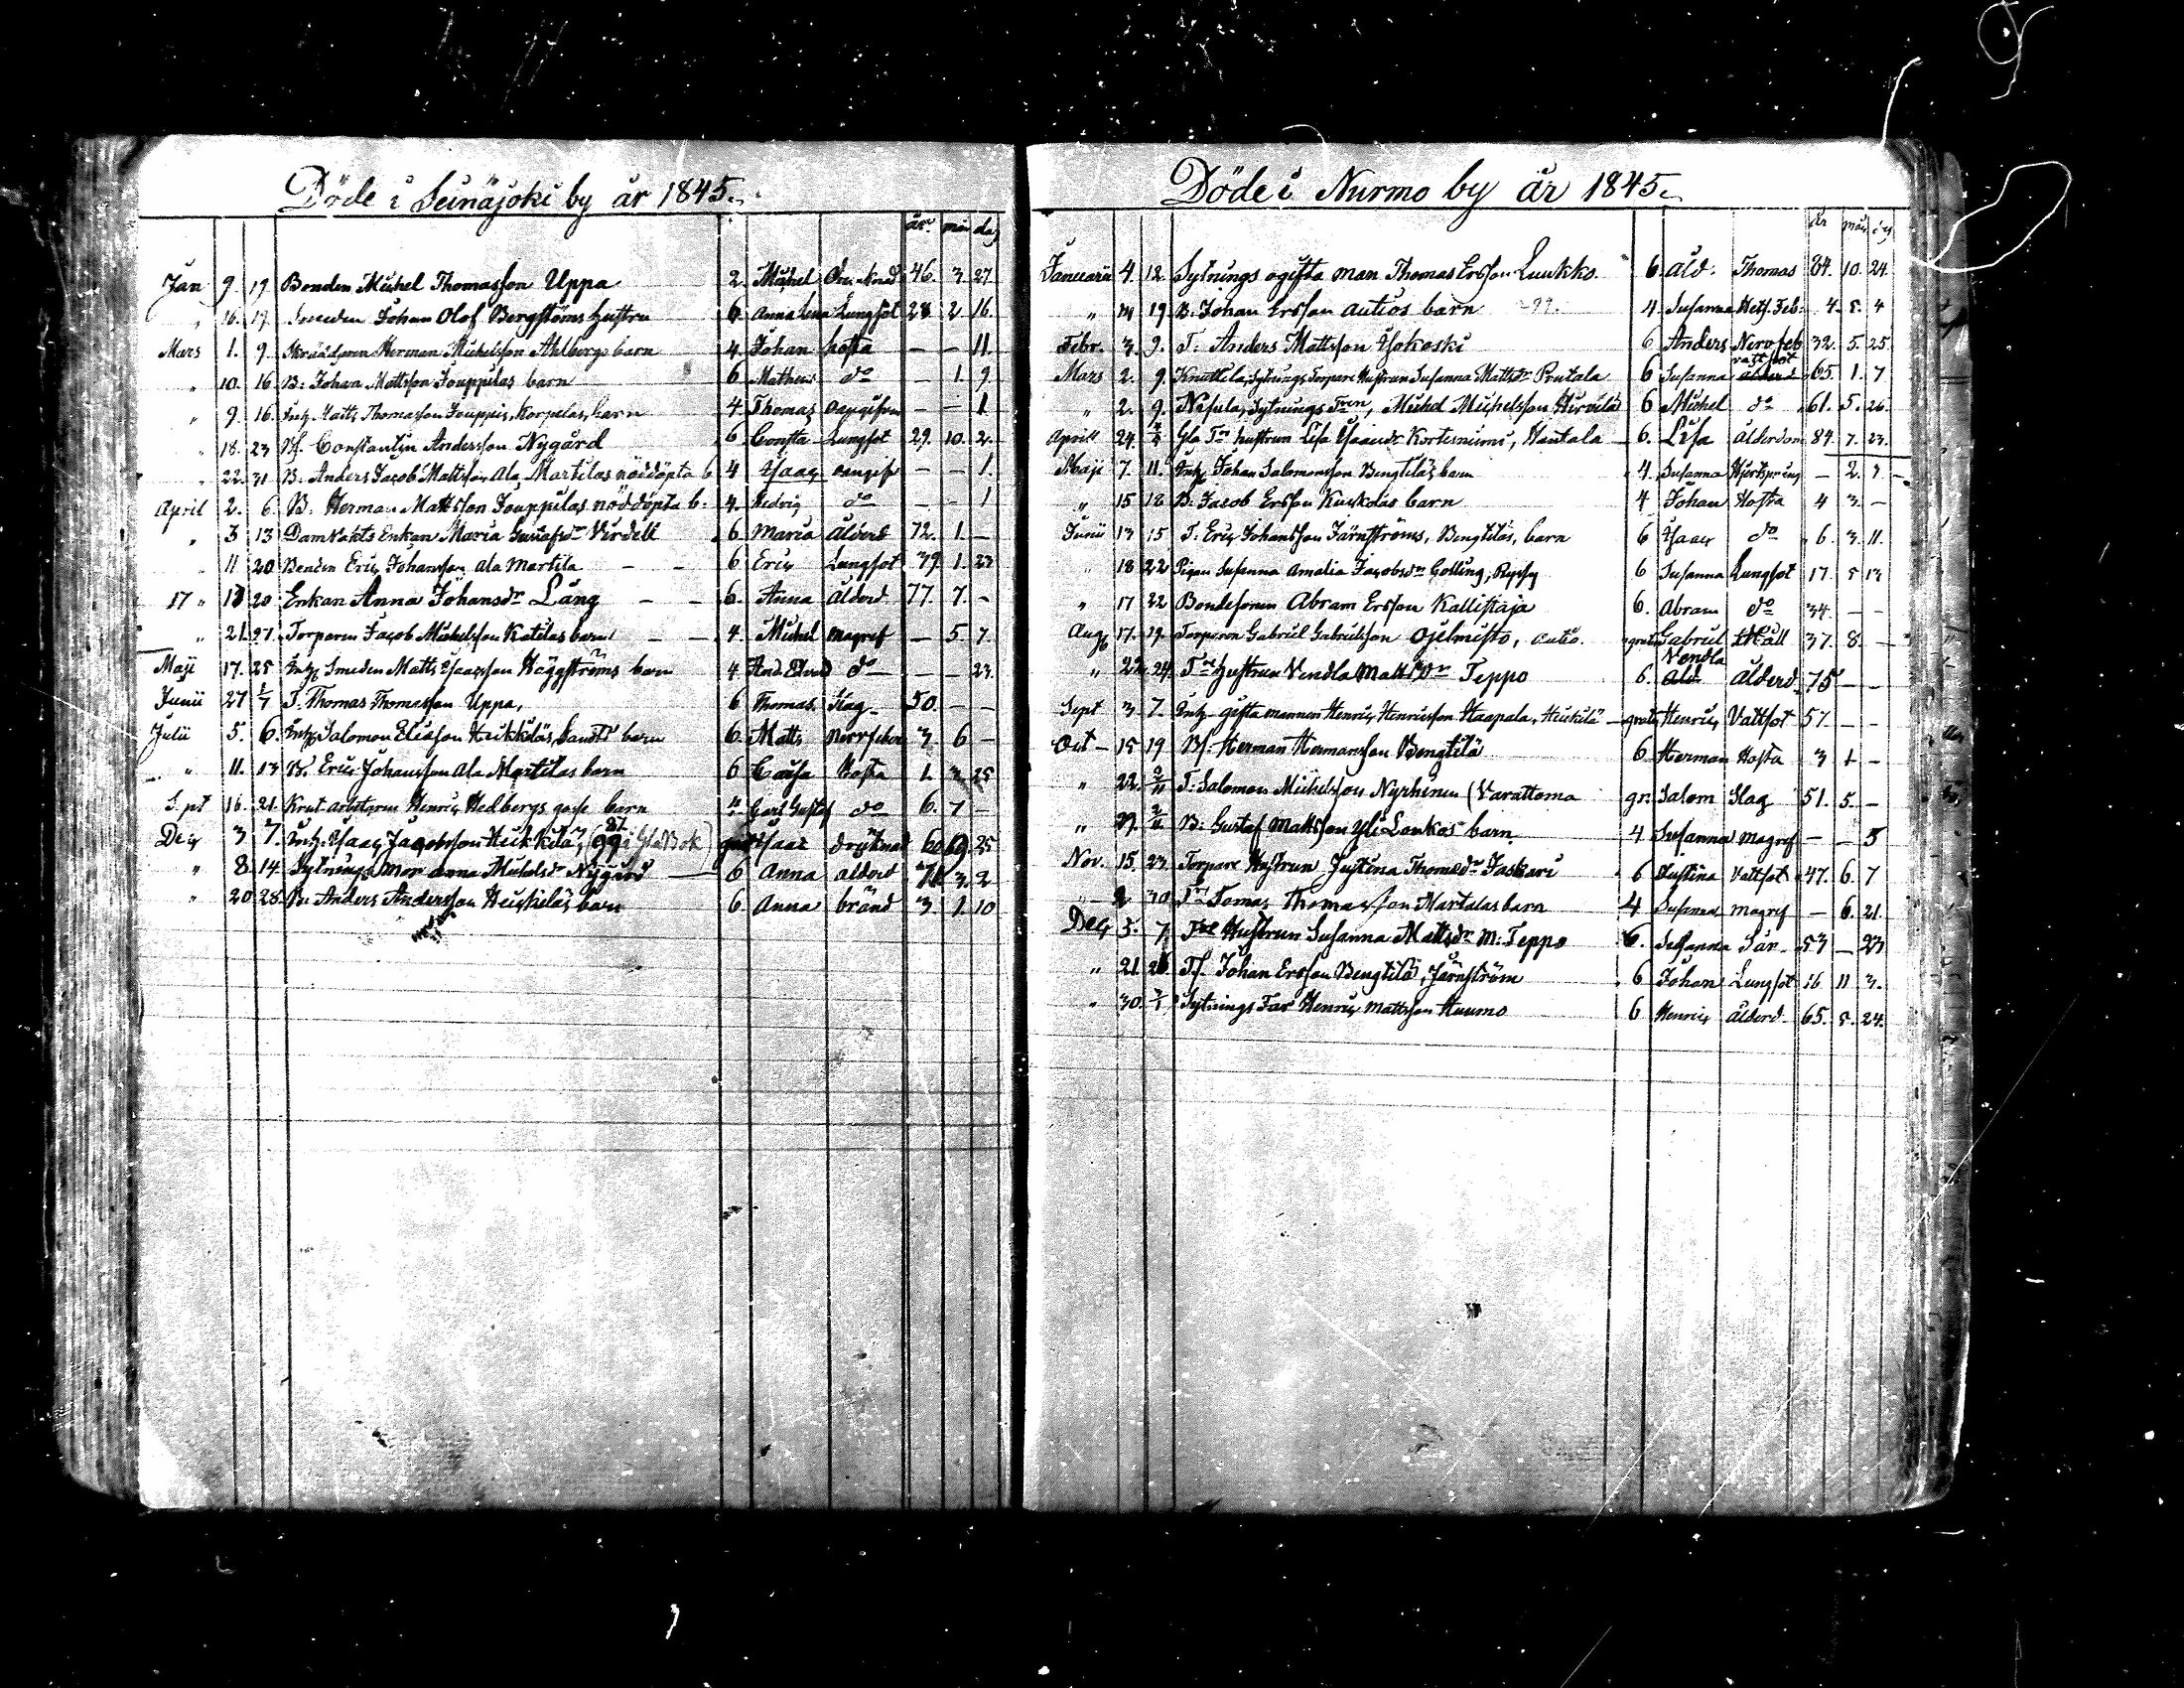 Döde i Seinäjoki by år 1845.
år mån dag
Jan 9. 19 Bonden Michel Thomasson Uppa 2. Michel 46. 3 27
" 16. 19. Smeden Johan Olof Bergströms hustru 6 Anna Lena Lungsot 28 2 16.
Mars 1. 9. Skräddaren Herman Michelsson Ahlbergs barn 4 Johan hosta — — 11.
" 10. 16 B: Johan Mattsson Jouppilas barn 6 do — 1. 9.
" 9. 16. Matts Thomasson Jouppis, Korpelas, barn 4. Thomas — — 1
" 18. 23 Bs. Constantin Andersson Nygård 6 Consta Lungsot 29. 10. 2.
" 22. 31 B. Anders Jacob Mattsson Ala Martilas nöddöpta b 4 Isaac — — 1.
April 2. 6. B. Herman Mattsson Jouppilas nöddöpta b. 4. Hedvig do — — 1
" 3 13 Enkan Maria Virdell 6 Maria ålderd 72. 1. —
" 11 20 Bonden Eric Johansson Ala Martila — — 6 Eric Lungsot 39. 1. 23
17 " 20 Enkan Anna Johansdr Lång — — 6. Anna ålderd 77. 7. -
" 21. 27. Torparen Jacob Michelsson Katilas barn — — 4. Michel magref — 5 7
Maji 17. 25 Inh. Smeden Matts Isaacsson Häggströms barn 4 do — — 23.
Junii 27 6/7 T. Thomas Thomasson Uppa, 6 Thomas Slag 50. — —
Julii 5. 6. Inh. Salomon Eliasson Heikkiläs, barn 6. Matts Nervfeber 3 6 -
" 11. 13 B. Eric Johansson Ala Martilas barn 6 Caisa Hosta 1. 3 25
Sept 16. 21. Henric Hedbergs barn 4. Carl Gustaf do 6. 7 —
Dec 3 7. Inh. Isaac Jacobsson Heikkilä, Isaac drunknat 60 25
" 8. 14. Sytnings Mor Anna Michelsdr Nygård 6 Anna ålderd 71 3. 2
" 20 28. B. Anders Andersson Heikkiläs barn 6 Anna bränd 3. 1. 10
Döde i Nurmo by år 1845.
år mån dag
Januarii 4. 12. Sytnings ogifta man Thomas Ersson Luukko. 6 åld. Thomas 84. 10. 24.
" 19 B. Johan Ersson Autios barn 4 Susanna Hetf. Feb. 4. 5. 4
Febr. 3. 9. T. Anders Mattsson Ylikoski 6 Anders Nerv feb 32. 5. 25
Mars 2. 9. Knuttila, Sytnings Torpare Hustrun Susanna Mattsdr Prutala 6 Susanna vattsot 65. 1. 7
" 2. 9. Nisula, Sytnings Tren, Michel Michelsson Hirvilä 6 Michel do 61. 5. 26.
April 24 Gla Tre hustrun Lisa Isaacsdr Kortesniemi, Hautala 6. Lisa Ålderdom 84. 7. 23.
Maji 7. 11. Inh. Johan Salomonsson Bengtiläs barn 4. Susanna — 2. 7.
" 15 18 B. Jacob Ersson Kuckolas barn 4 Johan Hosta 4 3. —
Junii 13 15 T. Eric Johansson Järnströms, Bengtiläs, barn 6 Isaac do 6. 3. 11.
" 18 22 Pigan Susanna Amalia Jacobsdr Golling, 6 Susanna Lungsot 17. 5 13
" 17 22 Bondesonen Abram Ersson Kallistaja 6. Abram do 34. — —
Aug 17. 19. Torparen Gabriel Gabrielsson Ojelmisto, Autio. Gabriel 37. 8. —
" 22. 24. Tre hustrun Vendla Mattsdr Teppo 6. Vendla Ålderd. 75 — —
Sept 3 7. Inh. gifta mannen Henric Henricsson Haapala, Heikkilä Henric Vattsot 57. — —
Oct — 15 19 Bs. Herman Hermansson Bengtilä 6 Herman Hosta 3 1 -
" 22. 2/11 T. Salomon Michelsson Nyrhinen (Varattoma gr. Salom Slag 51. 5. —
" 29. 2/11 B. Gustaf Mattsson Yli Laukas barn 4 Susanna Magref — — 5
Nov. 15. 23. Torpare Hustrun Justina Thomasdr Jaskari 6 Justina Vattsot 47. 6. 7
" 30 Tre Tomas Thomasson Martalas barn 4 Susanna Magref — 6. 21.
Dec 3. 7. Tre Hustrun Susanna Mattsdr M. Teppo 6. Susanna Sår 53 — 23
" 21. Ts. Johan Ersson Bengtilä, Järnström 6 Johan Lungsot 16 11 3.
" 30. Sytnings Far Henric Mattsson Huumo 6 Henric Ålderd. 65. 5. 24.